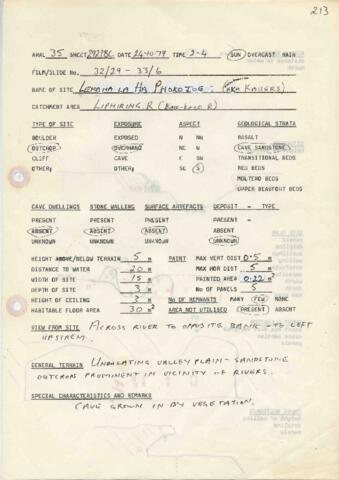 213
ARAL 35 SHEET 2927BC DATE 24-10-79 TIME 2-4 SUN OVERCAST RAIN
FILM/SLIDE No. 32/29 - 33/6
NAME OF SITE LEHAHA LA HA PHOROTOE:
CATCHMENT AREA LIPHIRING R
TYPE OF SITE EXPOSURE ASPECT GEOLOGICAL STRATA
BOULDER EXPOSED N NW BASALT
OUTCROP OVERHANG NE W CAVE SANDSTONE
CLIFF CAVE E SW TRANSITIONAL BEDS
OTHER: OTHER: SE S RED BEDS
MOLTENO BEDS
UPPER BEAUFORT BEDS
CAVE DWELLINGS STONE WALLING SURFACE ARTEFACTS DEPOSIT - TYPE
PRESENT PRESENT PRESENT PRESENT -
ABSENT ABSENT ABSENT ABSENT
UNKNOWN UNKNOWN UNKNOWN UNKNOWN
HEIGHT ABOVE/BELOW TERRAIN 5 m PAINT MAX VERT DIST 0.5 m
DISTANCE TO WATER 20 m MAX HOR DIST 5 m
WIDTH OF SITE 15 m PAINTED AREA 0.22 m2
DEPTH OF SITE 3 m No OF PANELS 5
HEIGHT OF CEILING 3 m No OF REMNANTS MANY FEW NONE
HABITABLE FLOOR AREA 30 m2 AREA NOT UTILISED PRESENT ABSENT
VIEW FROM SITE ACROSS RIVER TO OPPOSITE BANK - TO LEFT
UPSTREAM.
GENERAL TERRAIN UNDULATING VALLEY PLAIN - SANDSTONE
OUTCROPS PROMINENT IN VICINITY OF RIVERS.
SPECIAL CHARACTERISTICS AND REMARKS
CAVE GROWN IN BY VEGETATION.